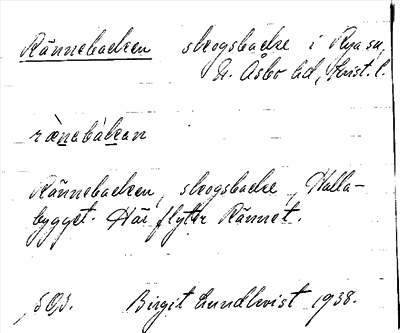 Rännebacken skogsbacke i Rya sn,
N. Åsbo hd, Krist. l.
rä̀nebàkan
Rännebacken, skogsbacke, Halla-
bygget. Här flyter Rännet.
Birgit Lundkvist 1938.